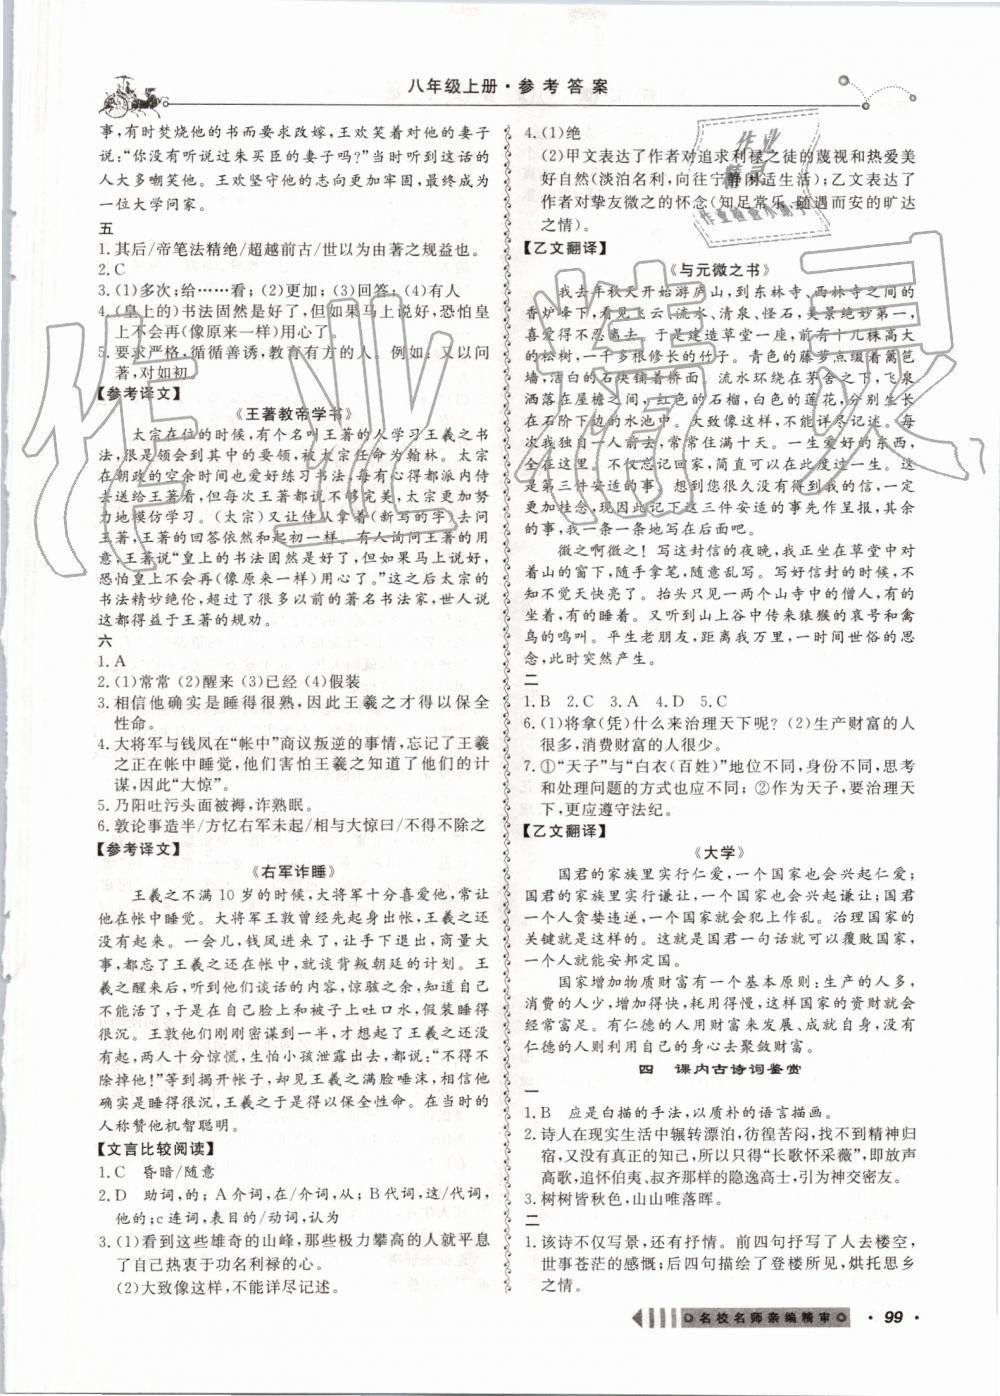 八年级上册·参考答案
事，有时焚烧他的书而要求改嫁，王欢笑着对他的妻子
说：“你没有听说过朱买臣的妻子吗？”当时听到这话的
人大多嘲笑他。王欢坚守他的志向更加牢固，最终成为
一位大学问家。
五
1.其后/帝笔法精绝/超越前古/世以为由著之规益也。
2.C
3.(1)多次；给……看；(2)更加；(3)回答；(4)有人
4.(皇上的)书法固然是好了，但如果马上说好，恐怕皇
上不会再(像原来一样)用心了。
5.要求严格，循循善诱，教育有方的人。例如：又以问
著，对如初
【参考译文】
《王著教帝学书》
太宗在位的时候，有个名叫王著的人学习王羲之书
法，很是领会到其中的要领，被太宗任命为翰林。太宗
在朝政的空余时间也爱好练习书法，每有得都派内侍
去送给王著看，但每次王著都不够完美，太宗更加努
力地模仿学习。(太宗)又让侍从拿着(新写的字)去问
王著，王著的回答依然和以前一样。有人询问王著的用
意，王著说“皇上的书法固然是好了，但如果马上说好，
恐怕皇上不会再(像原来一样)用心了。”这之后太宗的
书法精妙绝伦，超过了很多以前的著名书法家，世人说
这都得益于王著的规劝。
六
1.A
2.(1)常常 (2)醒来 (3)已经 (4)假装
3.相信他确实是睡得很熟，因此王羲之才得以保全
性命。
4.大将军与钱凤在“帐中”商议叛逆的事情，忘记了王羲
之正在帐中睡觉，他们害怕王羲之知道了他们的计
谋，因此“大惊”。
5.乃阳吐污头面被褥，诈熟眠。
6.敦论事造半/方忆右军未起/相与大惊曰/不得不除之
【参考译文】
《右军诈睡》
王羲之不满 10 岁的时候，大将军十分喜爱他，常让
他在帐中睡觉。大将军王敦曾经先起身出帐，王羲之还
没有起来。一会儿，钱凤进来了，让手下退出，商量大
事，都忘了王羲之还在帐中，就谈背叛朝廷的计划。王
羲之醒来后，听到他们谈话的内容，惊骇之余，知道自己
不能活了，于是在自己脸上和被子上吐口水，假装睡得
很沉。王敦他们刚刚密谋到一半，才想起了王羲之还没
有起来，两人十分惊慌，生怕小孩泄露出去，说：“不得不
除掉他！”等到揭开帐子，看见王羲之满脸唾沫，相信他
睡得很沉，于是王羲之得以保全性命。在当时的
人称赞他机智聪明。
【文言比较阅读】
1.C 昏暗/随意
2.D 助词，的；A介词，在/介词，从；B代词，这/代词，
他的；c连词，表目的/动词，认为
3.(1)看到这些雄奇的山峰，那些极力攀高的人就平息
了自己热衷于功名利禄的心。
(2)大致像这样，不能详尽记述。
4.(1)绝
(2)甲文表达了作者对追求利禄之徒的蔑视和热爱美
好自然(淡泊名利，向往宁静闲适生活)；乙文表达了
作者对挚友微之的怀念(知足常乐、随遇而安的旷达
之情)。
【乙文翻译】
《与元微之书》
我去年秋天开始游庐山，到东林寺、西林寺之间的
香炉峰下，看见飞云、流水、清泉、怪石，美景绝妙第一，
喜爱得不忍离去；于是建造草堂一座，前有十几株高大
的松树，一千多根修长的竹子。青色的藤萝点缀着篱笆
墙，洁白的石块铺着桥面。流水环绕在茅舍之下，飞泉
洒落在屋檐之间，红色的石榴，白色的莲花，分别生长
在石阶下边的水池中。大致像这样，不能详尽记述。每
次我独自一人前往，常常住满十天。一生爱好的东西，
全在这里。不仅忘记回家，简直可以在此度过一生。这
是第三件安适的事情。想到您很久没有得到我的信，一
定更加挂念，因此记下这三件安适的事先作呈报，其余
的事，一条一条地写在后面吧。
微之啊微之！写这封信的夜晚，我正坐在草堂中对
着山的窗下，随手拿笔，随意乱写。写好信封的时候，不
知不觉天快亮了。抬头只见一两个山寺中的僧人，有的
坐着，有的睡着。又听到山上谷中传来猿猴的哀号和禽
鸟的鸣叫。平生老朋友，距离我万里，一时间世俗的思
念，此时突然产生。
二
1.B 2.C 3.A 4.D 5.C
6.(1)将拿(凭)什么来治理天下呢？(2)生产财富的人
很多，消费财富的人很少。
7.①“天子”与“白衣(百姓)”地位不同，身份不同，思考
和处理问题的方式也应不同；②作为天子，要治理天
下，更应遵守法纪。
【乙文翻译】
《大学》
国君的家族里实行仁爱，一个国家也会兴起仁爱；
国君的家族里实行谦让，一个国家也会兴起谦让；国君
一个人贪婪违逆，一个国家就会犯上作乱。治理国家的
关键就是这样的。这就是国君一句话就可以覆败国家，
一个人就能安邦定国。
国家增加物质财富有一个基本原则：生产的人多，
消费的人少，增加得快，耗用得慢，这样国家的资财就会
经常富足。有仁德的人用财富来发展、成就自身，没有
仁德的人利用自己的身心去聚敛财富。
四 课内古诗词鉴赏
一
1.B 应是白描的手法，以质朴的语言描画。
2.诗人在现实生活中辗转漂泊，彷徨苦闷，找不到精神归
宿，又没有真正的知己，所以只得“长歌怀采薇”，即放声
高歌，追怀伯夷、叔齐那样的隐逸高士，以求精神慰藉。
3.树树皆秋色，山山唯落晖。
二
1.该诗不仅写景，还有抒情。前四句抒写了人去楼空，
世事苍茫的感慨；后四句描写了登楼所见，烘托思乡
之情。
名校名师亲编精审
·99·
作业精灵